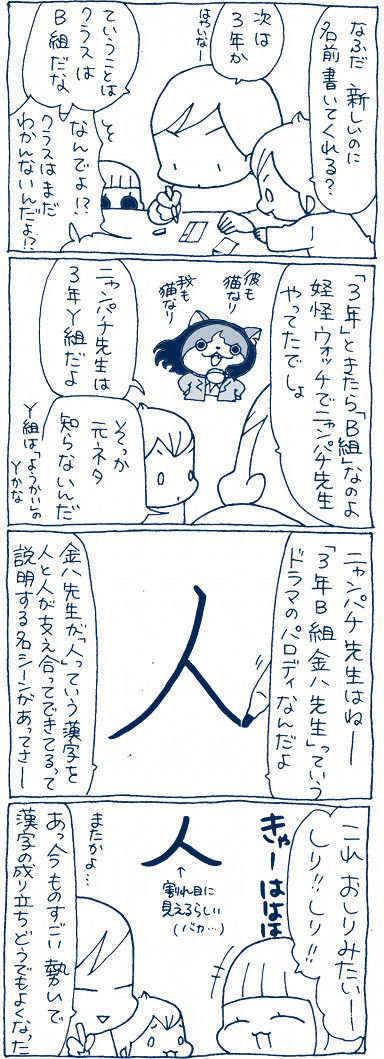 なふだ 新しいのに
名前書いてくれる?
次は
3年か
はやいなー
ていうことは
クラスは
B組だな
えっ
なんでよ!?
クラスはまだ
わかんないんだよ!?
「3年」ときたら「B組」なのよ
妖怪ウォッチでニャンパチ先生
やってたでしょ
彼も
猫なり
我も
猫なり
ニャンパチ先生は
3年Y組だよ
そっか
元ネタ
知らないんだ
Y組は「ようかい」の
Yかな
ニャンパチ先生はねー
「3年B組金八先生」っていう
ドラマのパロディなんだよ
人
金八先生が「人」っていう漢字を
人と人が支え合ってできてるって
説明する名シーンがあってさー
これ おしりみたいー
しり!!しり!!
きゃーははは
人
↑
割れ目に
見えるらしい
(バカ…)
またかよ…
あっ今ものすごい勢いで
漢字の成り立ちどうでもよくなった